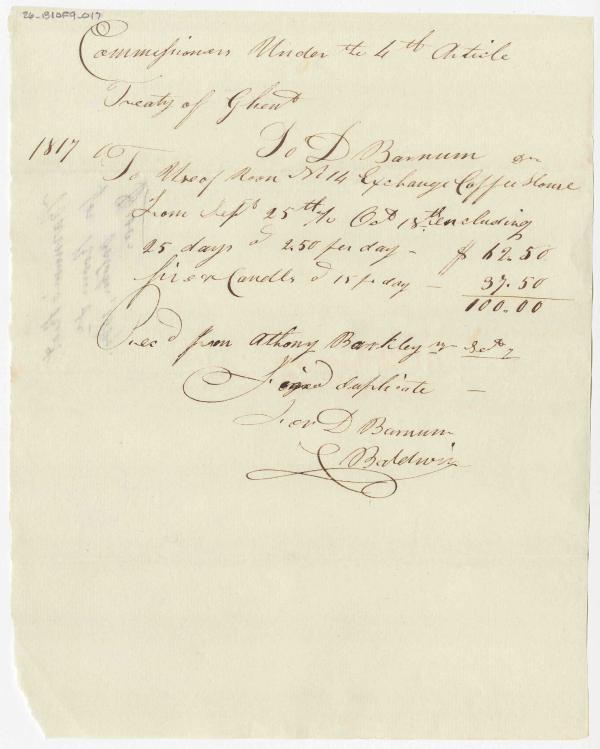 26-B10F9-017
Commissioners Under the 4th Article
Treaty of Ghent
To D Barnum Dr
1817
To Use of Room No 14 Exchange Coffee House
from Sept 25th to Oct 18th including
25 days @ 2.50 per day - $ 62.50
fire & Candles @ 15 pr day - 37.50
100.00
Rec'd from Athony Barkley
Signed duplicate -
For D Barnum
Baldwin